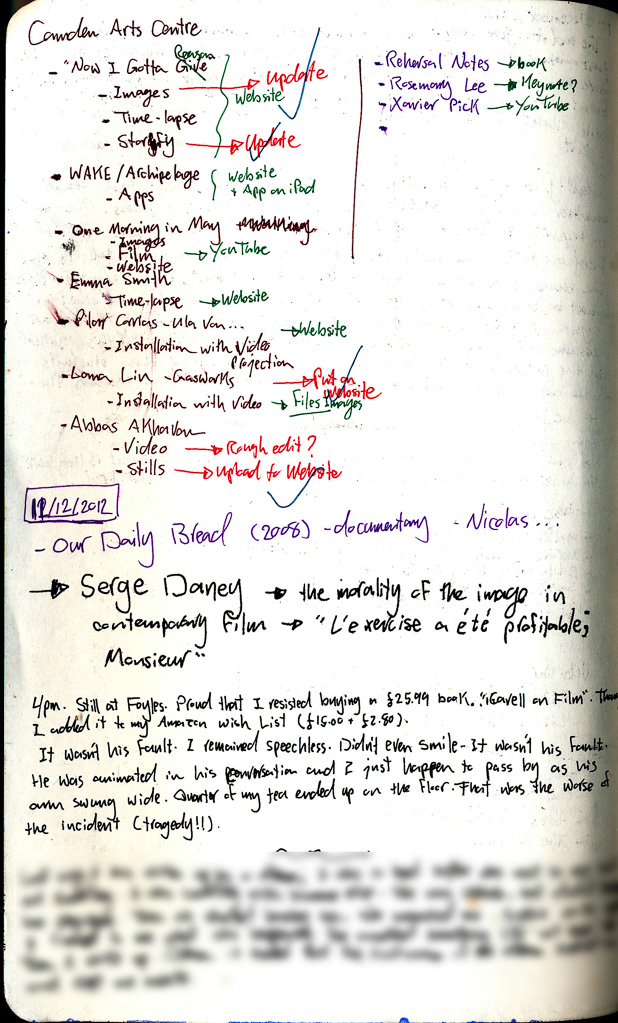 Camden Arts Centre
- "Now I Gotta Reason
Give
- Images → Update
Website
- Time-lapse
- Storify → Update
- WAKE/Archipelago
- Apps
Website
+ App on iPad
- One Morning in May
- Images
- Film → YouTube
- Website
- Emma Smith
- Time-lapse → Website
- Pilar Corrias - Ula Von... → Website
- Installation with Video
Projection
- Loma Lin - Gasworks → Put on
Website
- Installation with Video → Files Images
- Abbas Akhavan
- Video → Rough edit?
- Stills → Upload to Website
- Rehersal Notes → book
- Rosemary Lee → Keynote?
- Xavier Pick → YouTube
-
/12/2012
- Our Daily Bread (2008) - documentary - Nicolas...
→ Serge Daney → the morality of the image in
contemporary film → "L'exercise a été profitable,
Monsieur"
4pm. Still at Foyles. Proud that I resisted buying a £25.99 book. "Cavell on Film".
I added it to my Amazon wish List (£15.00 + £2.80).
It wasn't his fault. I remained speechless. Didn't even smile - It wasn't his fault.
He was animated in his conversation and I just happen to pass by as his
arm swung wide. Quarter of my tea ended up on the floor. That was the worse of
the incident (tragedy!!).